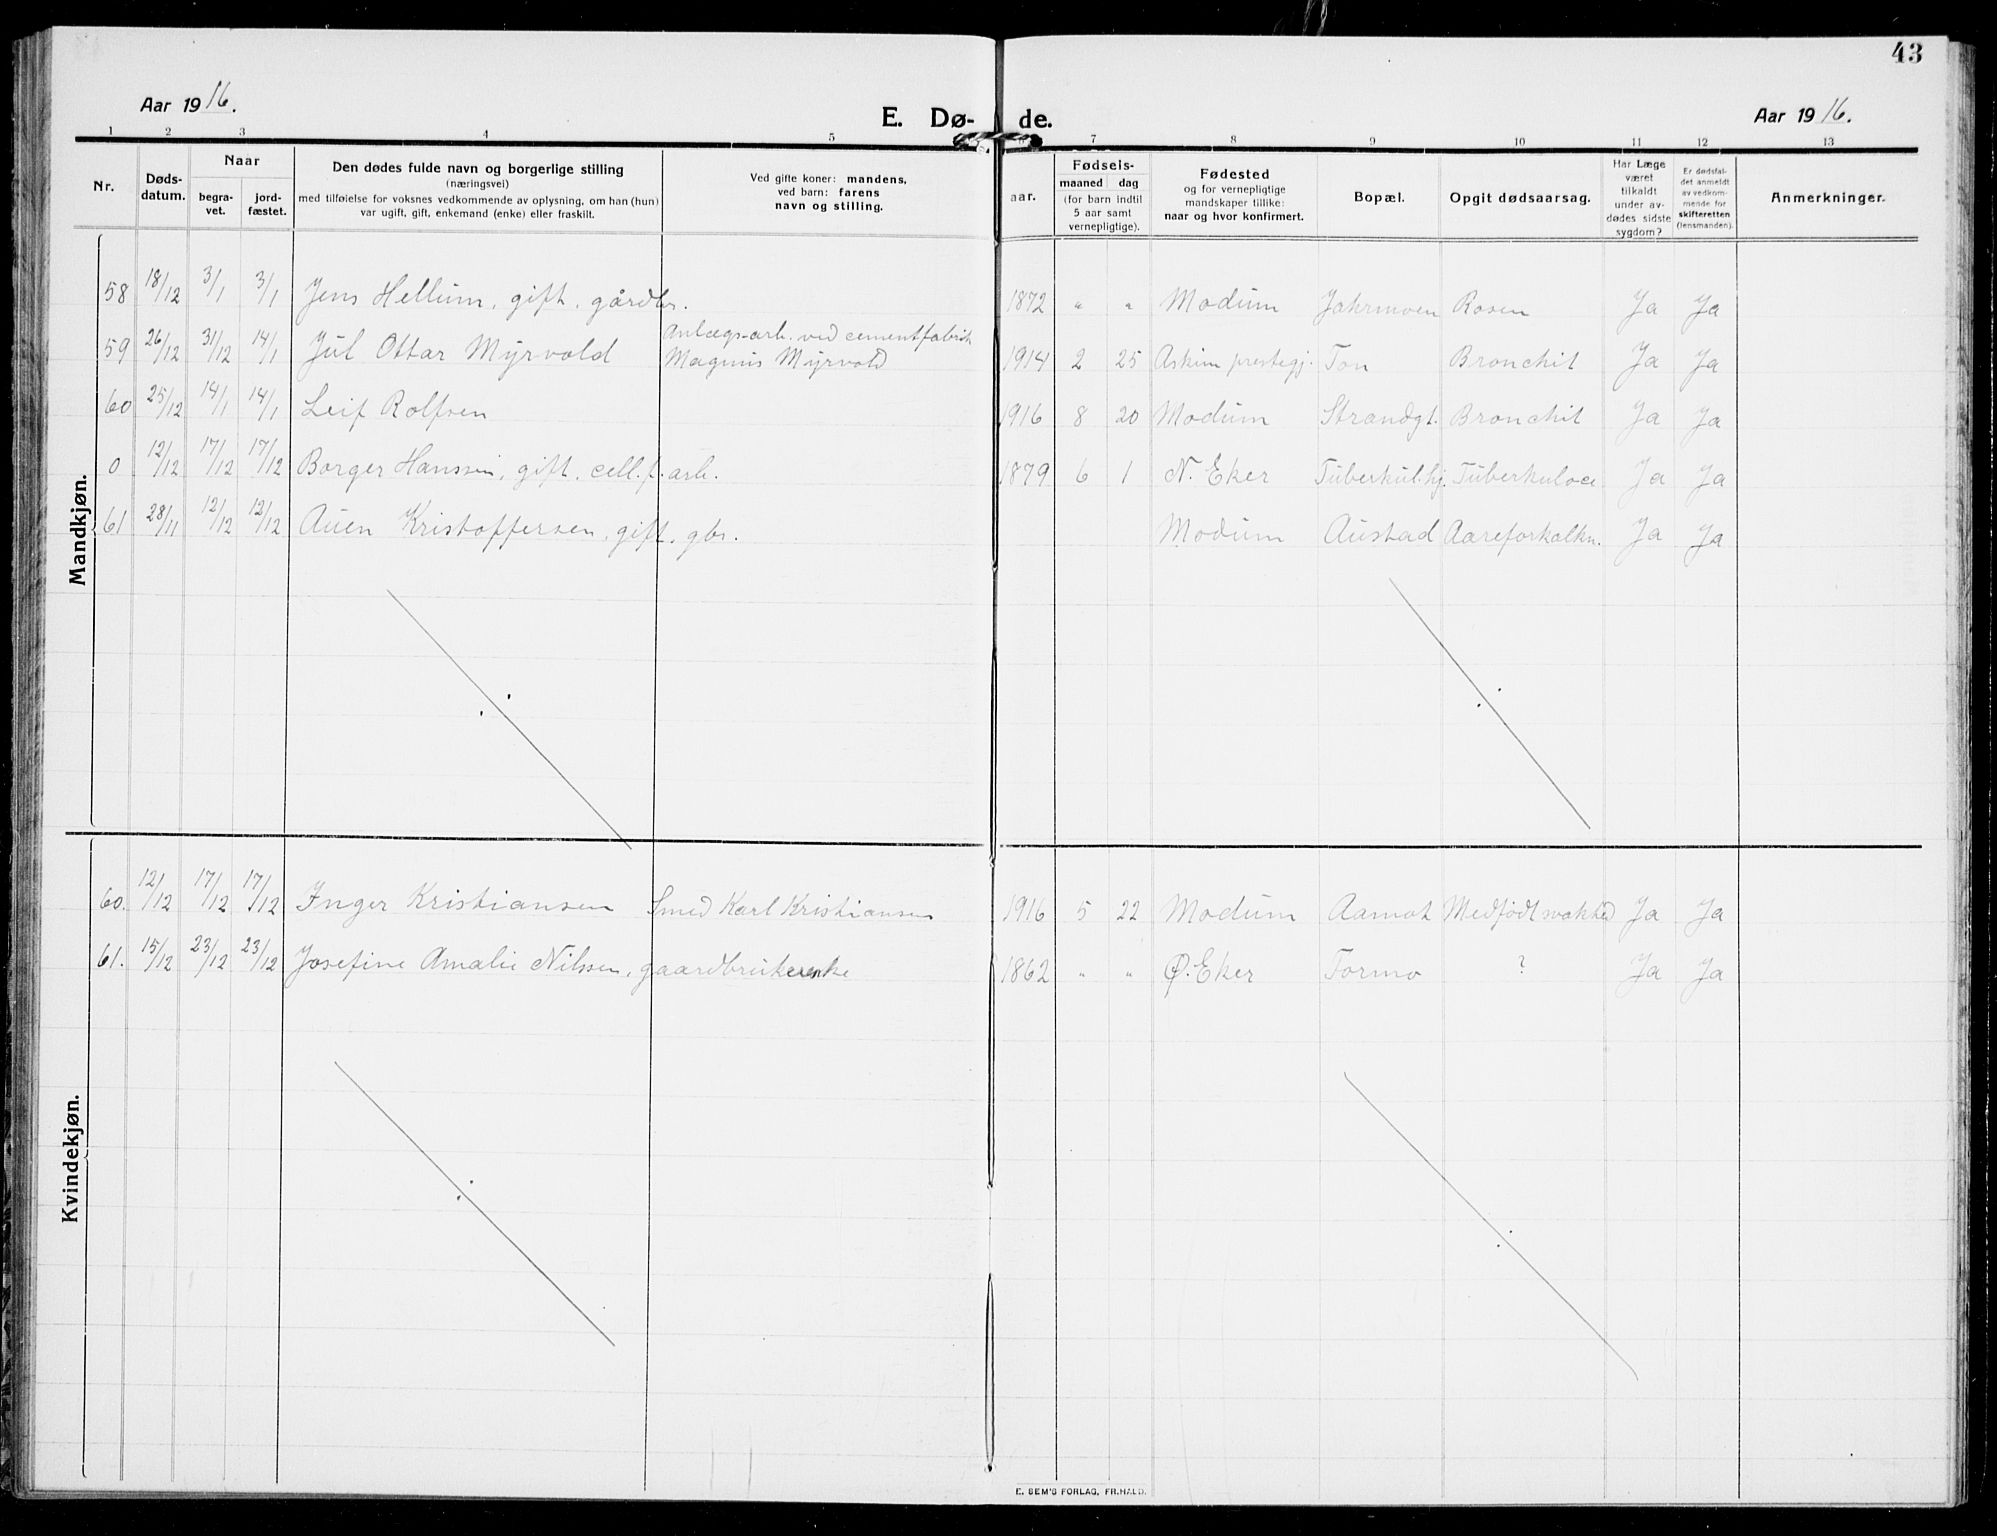 43
Aar 1916.
E. Dø-
de.
Aar 1916.
1 2 3 4 5 7 8 9 10 11 12 13
Nr.
Døds-
datum.
Naar
begra-
vet.
jord-
fæstet.
Den dødes fulde navn og borgerlige stilling
(næringsvei)
med tilføielse for voksnes vedkommende av oplysning, om han (hun)
var ugift, gift, enkemand (enke) eller fraskilt.
Ved gifte koner: mandens,
ved barn: farens
navn og stilling.
aar.
Fødsels-
maaned dag
(for barn indtil
5 aar samt
vernepligtige).
Fødested
og for vernepligtige
mandskaper tillike:
naar og hvor konfirmert.
Bopæl.
Opgit dødsaarsag.
Har Læge
været
tilkaldt
under av-
dødes sidste
sygdom?
Er dødsfal-
det anmeldt
av vedkom-
mende for
skifteretten
(lensmanden).
Anmerkninger.
Mandkjøn.
58 18/12 3/1 3/1 Jens Hellum, gift, gårdbr. 1872 " " Modum Jahrmoen Rosen Ja Ja
Anlægsarb. ved cementfabrik
59 26/12 31/12 14/1 Jul Ottar Myrvold Magnus Myrvold 1914 2 25 Askim prestegj. Ton Bronchit Ja Ja
60 25/12 14/1 14/1 Leif Rolfsen 1916 8 20 Modum Strandgt. Bronchit Ja Ja
0 12/12 17/12 17/12 Borger Hanssen, gift, cell.f.arb. 1879 6 1 N. Eker Tuberkul.hj. Tuberkuloce Ja Ja
61 28/11 12/12 12/12 Auen Kristoffersen, gift, gbr. Modum Austad Aareforkalkn. Ja Ja
Kvindekjøn.
60. 12/12 17/12 17/12 Inger Kristiansen Smed Karl Kristiansen 1916 5 22 Modum Aamot Medfødt svakhed Ja Ja
61. 15/12 23/12 23/12 Josefine Amalie Nilssen, gaardbrukerenke 1862 " " Ø. Eker Formo ? Ja Ja
E. SEM'S FORLAG, FR.HALD.